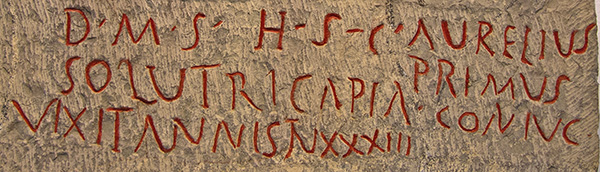 D·M·S· H·S·C· AURELIUS
SOLUTRICAPIA· PRIMUS
VIXITANNISNXXXIII CONIUC